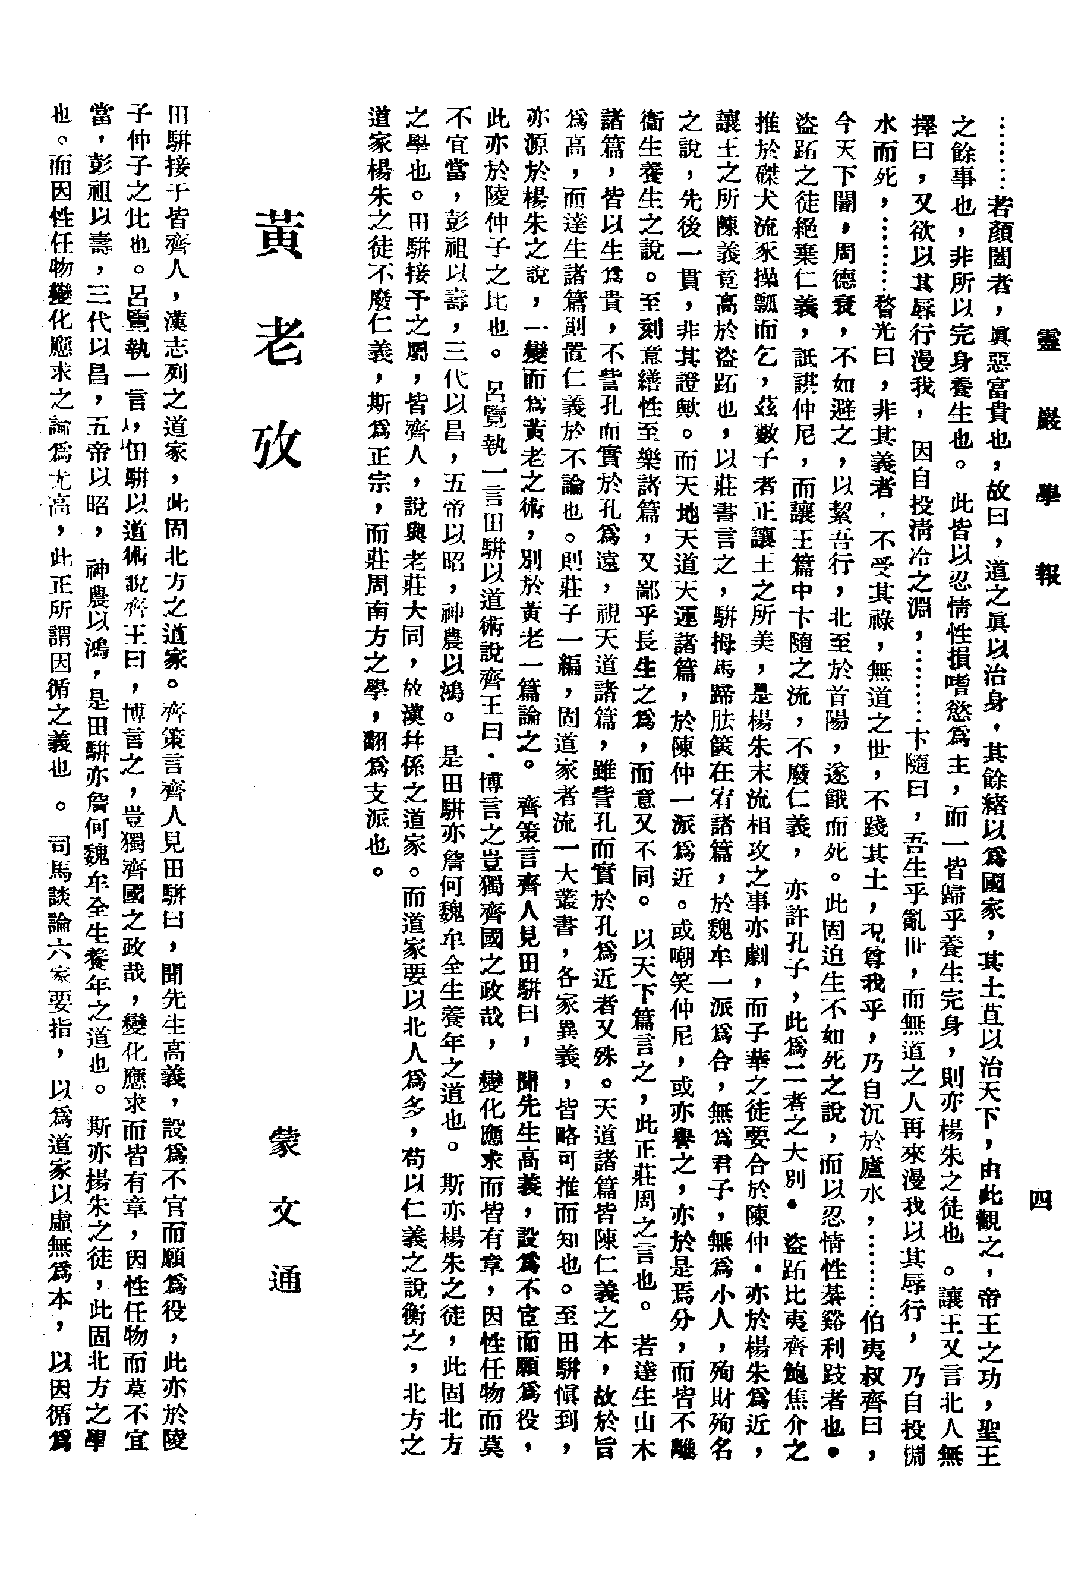 靈巖學報
四
………若顏闔者，眞惡富貴也，故曰，道之眞以治身，其餘緒以爲國家，其土苴以治天下，由此觀之，帝王之功，聖王
之餘事也，非所以完身養生也。此皆以忍情性損嗜慾爲主，而一皆歸乎養生完身，則亦楊朱之徒也。讓王又言北人無
擇曰，又欲以其辱行漫我，因自投淸泠之淵，………卞隨曰，吾生乎亂世，而無道之人再來漫我以其辱行，乃自投淵
水而死，………瞀光曰，非其義者，不受其祿，無道之世，不踐其土，况尊我乎，乃自沉於廬水，………伯夷叔齊曰，
今天下闇，周德衰，不如避之，以絜吾行，北至於首陽，遂餓而死。此固迫生不如死之說，而以忍情性綦谿利跂者也。
盜跖之徒絕棄仁義，詆諆仲尼，而讓王篇中卞隨之流，不廢仁義，亦許孔子，此爲二者之大別。盜跖比夷齊鮑焦介之
推於磔犬流豕操瓢而乞，茲數子者正讓王之所美，是楊朱末流相攻之事亦劇，而子華之徒要合於陳仲。亦於楊朱爲近，
讓王之所陳義竟高於盜跖也，以莊書言之，駢拇馬蹄胠篋在宥諸篇，於魏牟一派爲合，無爲君子，無爲小人，殉財殉名
之說，先後一貫，非其證歟。而天地天道天運諸篇，於陳仲一派爲近。或嘲笑仲尼，或亦譽之，亦於是焉分，而皆不離
衞生養生之說。至刻意繕性至樂諸篇，又鄙乎長生之爲，而意又不同。以天下篇言之，此正莊周之言也。若達生山木
諸篇，皆以生爲貴，不訾孔而實於孔爲遠，視天道諸篇，雖訾孔而實於孔爲近者又殊。天道諸篇皆陳仁義之本，故於旨
爲高，而達生諸篇則置仁義於不論也。則莊子一編，固道家者流一大叢書，各家異義，皆略可推而知也。至田駢愼到，
亦源於楊朱之說，一變而爲黃老之術，別於黃老一篇論之。齊策言齊人見田駢曰，聞先生高義，設爲不宦而願爲役，
此亦於陵仲子之比也。呂覽執一言田駢以道術說齊王曰。博言之豈獨齊國之政哉，變化應求而皆有章，因性任物而莫
不宜當，彭祖以壽，三代以昌，五帝以昭，神農以鴻。是田駢亦詹何魏牟全生養年之道也。斯亦楊朱之徒，此固北方
之學也。田駢接予之屬，皆齊人，說與老莊大同，故漢并係之道家。而道家要以北人爲多，苟以仁義之說衡之，北方之
道家楊朱之徒不廢仁義，斯爲正宗，而莊周南方之學，翻爲支派也。
黃老攷
蒙文通
田駢接予皆齊人，漢志列之道家，此固北方之道家。齊策言齊人見田駢曰，聞先生高義，設爲不宦而願爲役，此亦於陵
子仲子之比也。呂覽執一言，田駢以道術說齊王曰，博言之，豈獨齊國之政哉，變化應求而皆有章，因性任物而莫不宜
當，彭祖以壽，三代以昌，五帝以昭，神農以鴻，是田駢亦詹何魏牟全生養年之道也。斯亦楊朱之徒，此固北方之學
也。而因性任物變化應求之論爲尤高，此正所謂因循之義也。司馬談論六家要指，以爲道家以虛無爲本，以因循爲